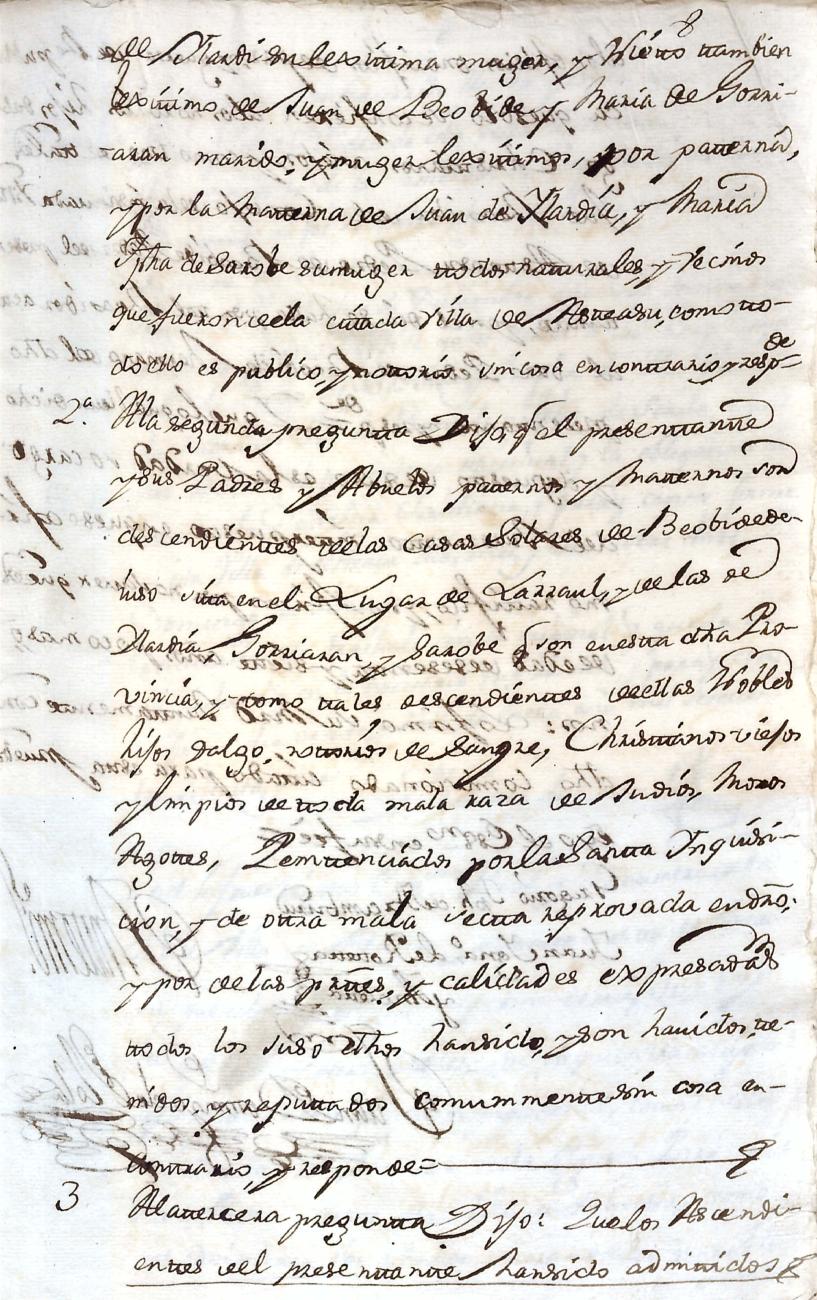 8
de Ylardi su lexitima muger, y Nietto ttambien
lexitimo de Juan de Beobide y Maria de Gorri-
aran marido, y muger lexitimos, por patterna,
y por la Matterna de Juan de Ylardia, y Maria
Jpha de Sarobe su muger ttodos naturales, y vecinos
que fueron de la cittada Villa de Asteasu, como tto-
do ello es publico, y nottorio sin cosa en conttrario y respde
2ª. A la segunda preguntta Dijo q el presenttante
y sus Padres y Abuelos patternos y Matternos son
descendienttes de las Casas Solares de Beobide de
iuso sitta en el Lugar de Larraul, y de las de
Ylardia Gorriaran, y Sarobe q son en estta dha Pro-
vincia, y como ttales descendienttes de ellas Nobles
hijos dalgo nottorios de Sangre, Christtianos viejos
y limpios de ttoda mala raza de Judios, Moros
Agottes, Penittenciados por la Santta Ynquisi-
cion, y de ottra mala Sectta reprovada en dro:
y por de las prttes, y calidades expresadas
ttodos los suso dhos han sido, y son havidos, tte-
nidos y reputtados comunmentte sin cosa en
Conttrario, y responde=
3 A la ttercera pregunta Dijo: Que los Ascendi-
enttes del presenttantte, han sido admittidos